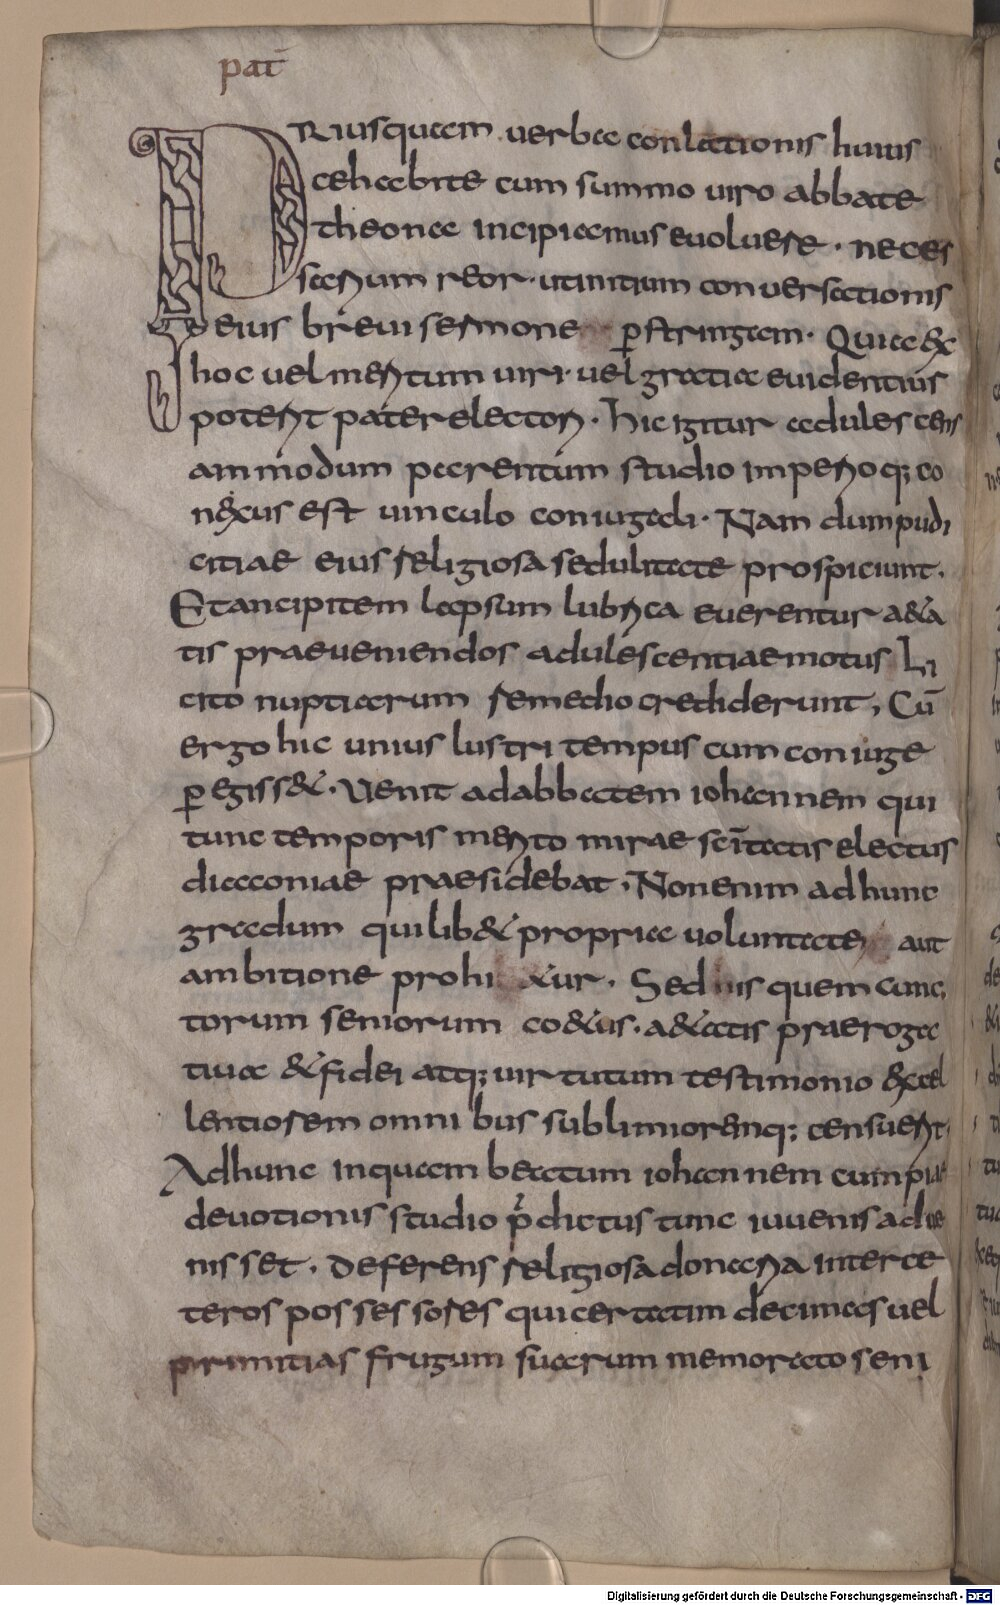 pat̄
PRiusquam uerba conlationis huius
ac habite cum summo uiro abbate
theonae incipiamus euoluere · neces
sarium reor · ut initium conuersationis
eius breui sermone ꝑstringam · Quia ex
hoc uel meritum uiri · uel gratia euidentius
poterit pater elector · Hic igitur adulescens
ammodum parentum studio imperioq; co
nexus est uinculo coniugali · Nam dum pudi
citiae eius religiosa sedulitate prospiciunt ·
Et ancipitem lapsum lubrica euerentur a&a
tis praeueniendos adulescentiae motus Li
cito nuptiarum remedio crediderunt, Cū
ergo hic unius lustri tempus cum coniuge
ꝑegiss& · Uenit ad abbatem iohannem qui
tunc temporis merito mirae sc̄itatis electus
diaconiae praesidebat · Non enim ad hunc
gradum quilib& propria uoluntate aut
ambitione prohi &ur · Sed is quem cunc
torum seniorum co&us · a&atis praeroga
tiua & fidei atq; uirtutum testimonio excel
lentiorem omnibus sublimioremq; censuerit
Ad hunc inquam beatum iohannem cum piae
deuotionis studio p̄dictus tunc iuuenis adue
nisset · Deferens religiosa donaria inter ce
teros possessores qui certatim decimas uel
primitias frugum suarum memorato seni
Digitalisierung gefördert durch die Deutsche Forschungsgemeinschaft - DFG